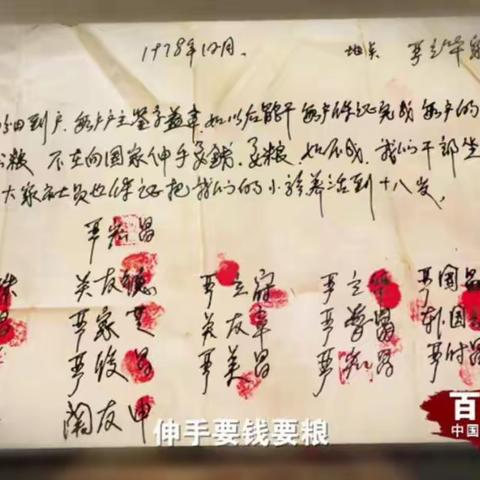 1978年12月. 地点 严立华家
分田到户. 每户户主签字盖章. 如以后能干 每户保证完成每户的
公粮 不在向国家伸手要钱要粮 如不成 我们干部坐
大家社员也保证把我们的小孩养活到十八岁.
严宏昌
珠 关友德 严立符 严立华 严国昌
昌 严家芝 关友章 严学昌 韩国
严俊昌 严美昌 严宏昌 严付昌
关友申
伸手要钱要粮
百
中国